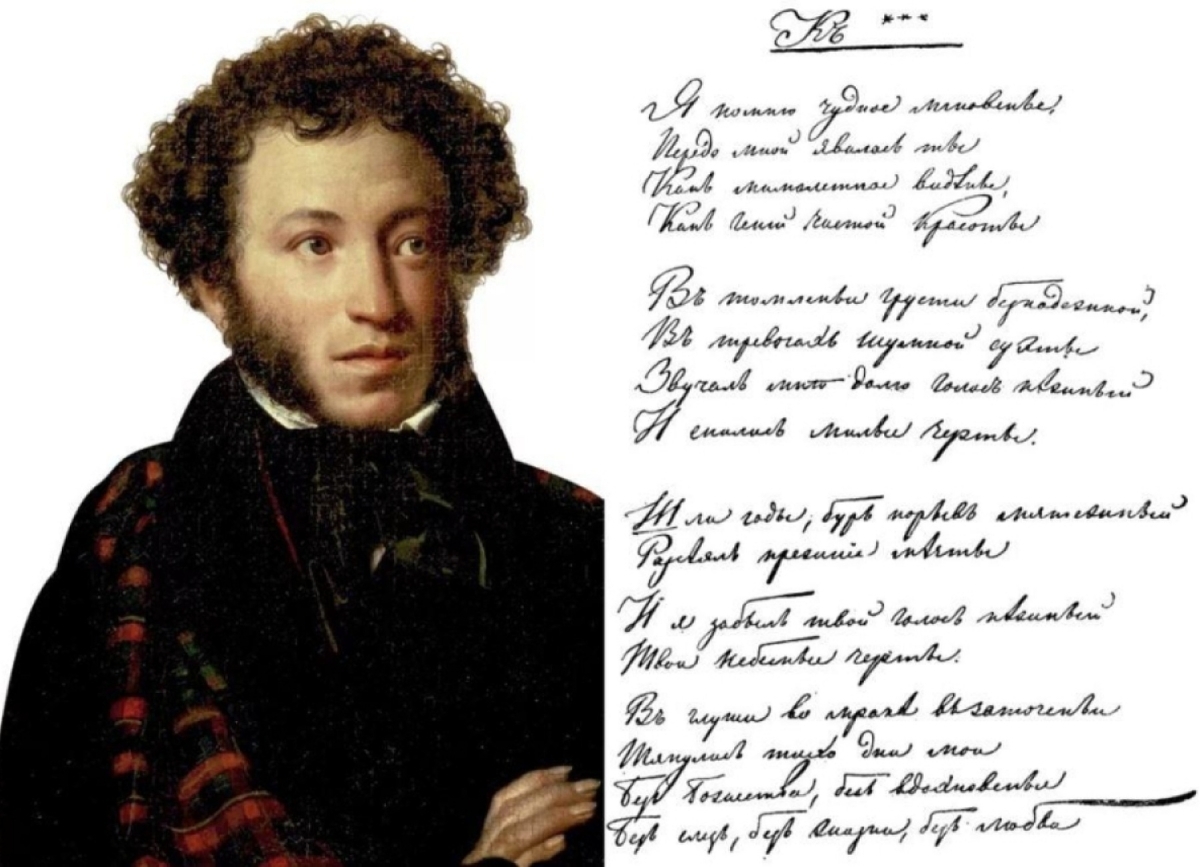 Къ ***
Я помню чудное мгновенье,
Передо мной явилась ты
Какъ мимолетное видѣнье,
Какъ геній чистой красоты
Въ томленьи грусти безнадежной,
Въ тревогахъ шумной суэты
Звучалъ мнѣ долго голосъ нѣжный
И снились милые черты.
Шли годы, бурь порывъ мятежный
Разсѣялъ прежніе мечты
И я забылъ твой голосъ нѣжный
Твои небесные черты.
Въ глуши во мракѣ въ заточеньи
Тянулись тихо дни мои
Безъ Божества, безъ вдохновенья
Безъ слезъ, безъ жизни, безъ любви